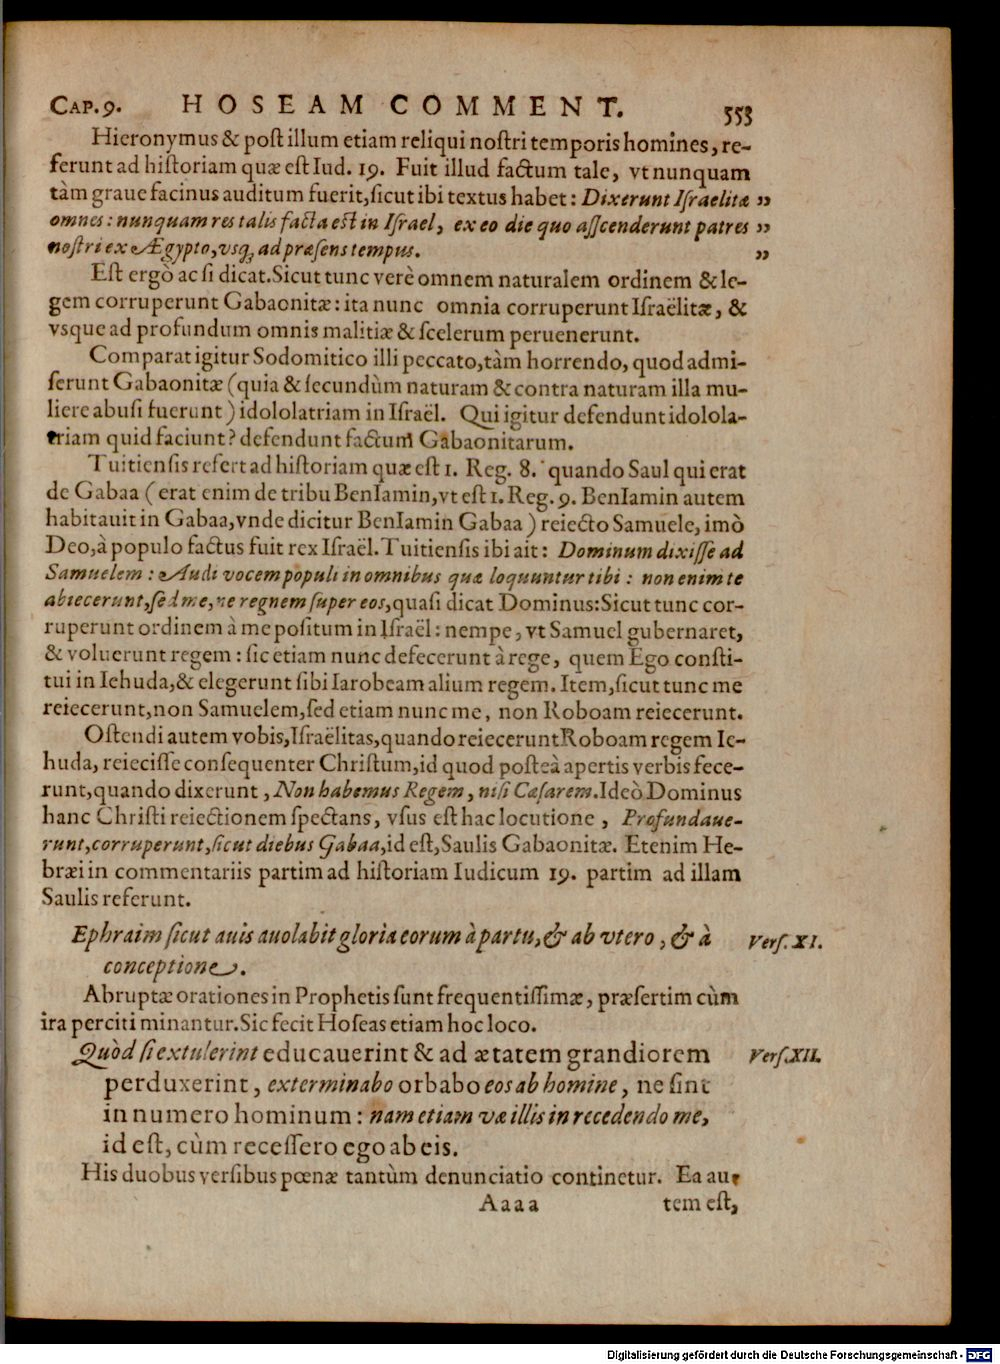 CAP. 9. HOSEAM COMMENT. 553
Hieronymus & poſt illum etiam reliqui noſtri temporis homines, re-
ferunt ad hiſtoriam quæ eſt Iud. 19. Fuit illud factum tale, vt nunquam
tàm graue facinus auditum fuerit, ſicut ibi textus habet: Dixerunt Iſraelitæ ”
omnes: nunquam res talis facta eſt in Iſrael, ex eo die quo aſſcenderunt patres ”
noſtri ex Ægypto, vsq; ad præſens tempus. ”
Eſt ergò ac ſi dicat. Sicut tunc verè omnem naturalem ordinem & le-
gem corruperunt Gabaonitæ: ita nunc omnia corruperunt Iſraëlitæ, &
vsque ad profundum omnis malitiæ & ſcelerum peruenerunt.
Comparat igitur Sodomitico illi peccato, tàm horrendo, quod admi-
ſerunt Gabaonitæ (quia & ſecundùm naturam & contra naturam illa mu-
liere abuſi fuerunt) idololatriam in Iſraël. Qui igitur defendunt idolola-
triam quid faciunt? defendunt factum Gabaonitarum.
Tuitienſis refert ad hiſtoriam quæ eſt 1. Reg. 8. quando Saul qui erat
de Gabaa (erat enim de tribu BenIamin, vt eſt 1. Reg. 9. BenIamin autem
habitauit in Gabaa, vnde dicitur BenIamin Gabaa) reiecto Samuele, imò
Deo, à populo factus fuit rex Iſraël. Tuitienſis ibi ait: Dominum dixiſſe ad
Samuelem: Audi vocem populi in omnibus quæ loquuntur tibi: non enim te
abiecerunt, ſed me, ne regnem ſuper eos, quaſi dicat Dominus: Sicut tunc cor-
ruperunt ordinem à me poſitum in Iſraël: nempe, vt Samuel gubernaret,
& voluerunt regem: ſic etiam nunc defecerunt à rege, quem Ego conſti-
tui in Iehuda, & elegerunt ſibi Iarobeam alium regem. Item, ſicut tunc me
reiecerunt, non Samuelem, ſed etiam nunc me, non Roboam reiecerunt.
Oſtendi autem vobis, Iſraëlitas, quando reiecerunt Roboam regem Ie-
huda, reieciſſe conſequenter Chriſtum, id quod poſteà apertis verbis fece-
runt, quando dixerunt, Non habemus Regem, niſi Cæſarem. Ideò Dominus
hanc Chriſti reiectionem ſpectans, vſus eſt hac locutione, Profundaue-
runt, corruperunt, ſicut diebus Gabaa, id eſt, Saulis Gabaonitæ. Etenim He-
bræi in commentariis partim ad hiſtoriam Iudicum 19. partim ad illam
Saulis referunt.
Ephraim ſicut auis auolabit gloria eorum à partu, & ab vtero, & à Verſ. XI.
conceptione.
Abruptæ orationes in Prophetis ſunt frequentiſſimæ, præſertim cùm
ira perciti minantur. Sic fecit Hoſeas etiam hoc loco.
Quòd ſi extulerint educauerint & ad ætatem grandiorem Verſ. XII.
perduxerint, exterminabo orbabo eos ab homine, ne ſint
in numero hominum: nam etiam væ illis in recedendo me,
id eſt, cùm receſſero ego ab eis.
His duobus verſibus pœnæ tantùm denunciatio continetur. Ea au-
Aaaa tem eſt,
Digitalisierung gefördert durch die Deutsche Forschungsgemeinschaft - DFG